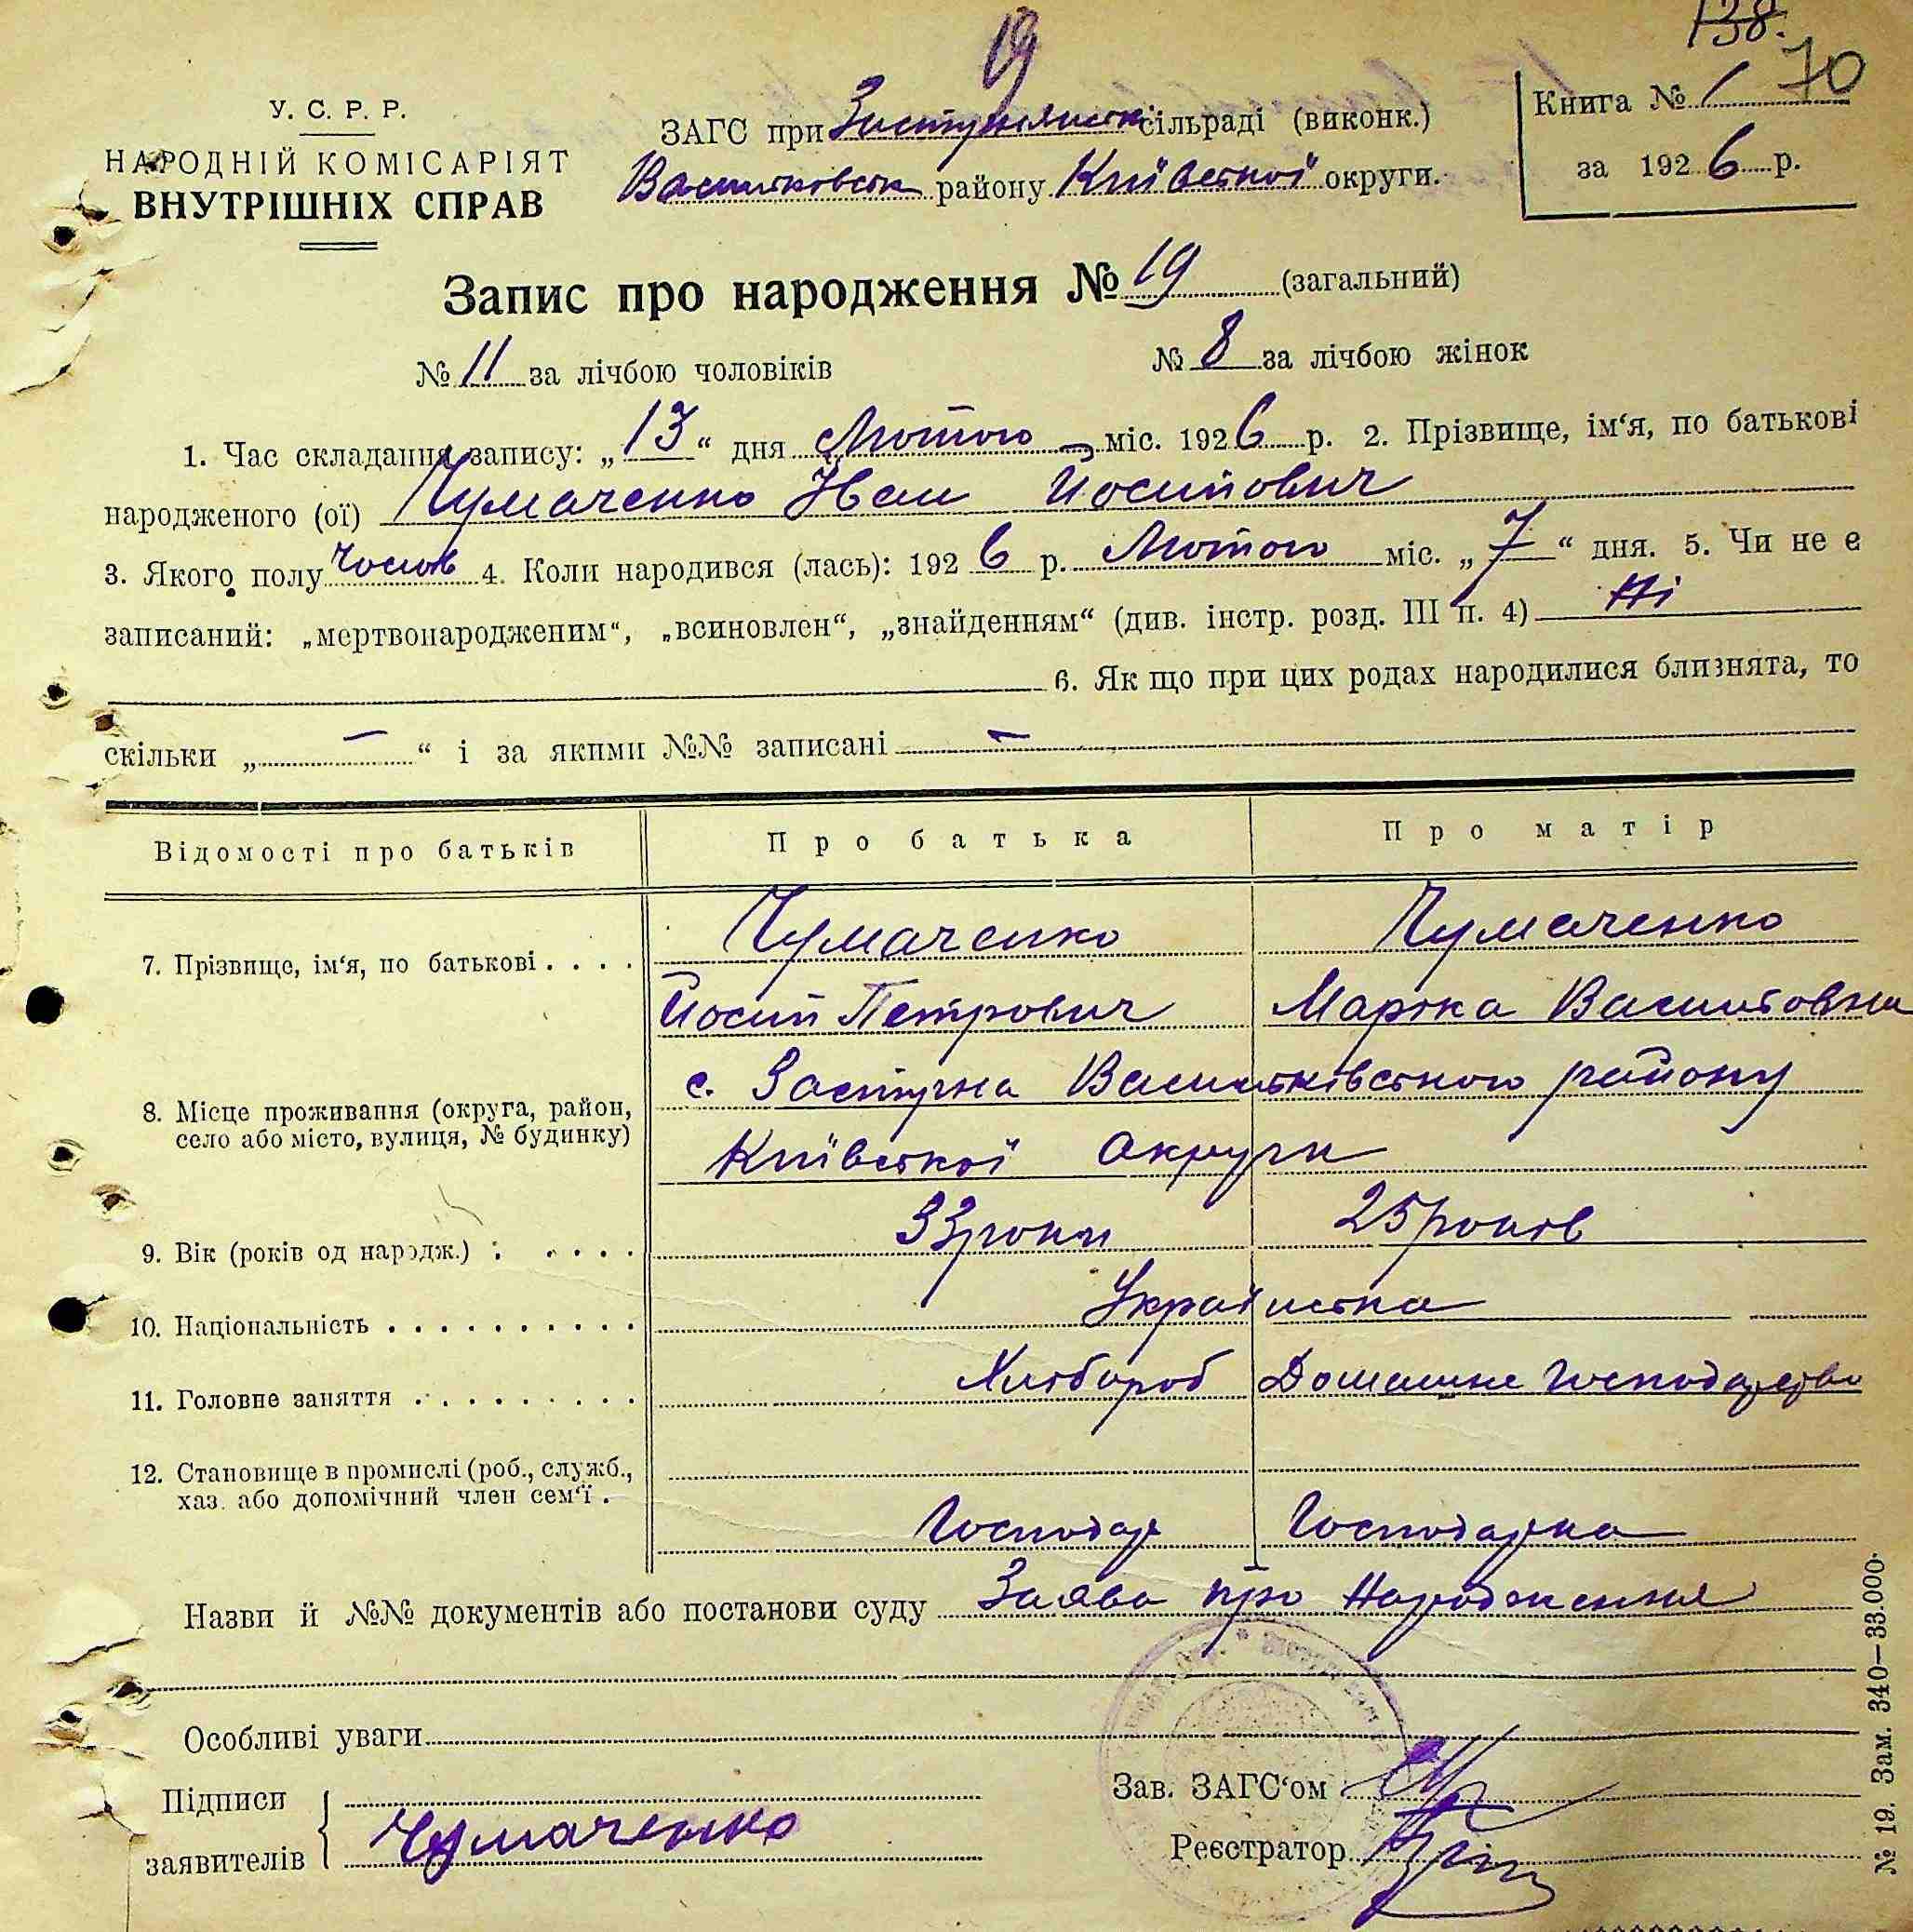 138.
19
70
У. С. Р. Р.
НАРОДНІЙ КОМІСАРІЯТ
ВНУТРІШНІХ СПРАВ
ЗАГС при Застугнянськ сільраді (виконк.)
Васильковськ району Київської округи.
Книга № 1
за 1926 р.
Запис про народження № 19 (загальний)
№ 11 за лічбою чоловіків № 8 за лічбою жінок
1. Час складання запису: „13“ дня Лютого міс. 1926 р. 2. Прізвище, ім‘я, по батькові
народженого (ої) Чумаченко Іван Йосипович
3. Якого полу Чолов 4. Коли народився (лась): 1926 р. Лютого міс. „7“ дня. 5. Чи не є
записаний: „мертвонародженим“, „всиновлен“, „знайденням“ (див. інстр. розд. III п. 4) Ні
6. Як що при цих родах народилися близнята, то
скільки „ — “ і за якими №№ записані —
Відомості про батьків Про батька Про матір
7. Прізвище, ім‘я, по батькові . . . . Чумаченко Чумаченко
Йосип Петрович Марька Васильовна
8. Місце проживання (округа, район, село або місто, вулиця, № будинку) с. Застугна Васильківського району
Київської Округи
9. Вік (років од народж.) . . . . . 33 роки 25 років
10. Національність . . . . . . . . . . Українська
11. Головне заняття . . . . . . . . . Хлібороб Домашнє Господарство
12. Становище в промислі (роб., служб.,
хаз. або допомічний член сем‘ї . Господар Господарка
Назви й №№ документів або постанови суду Заява про Народження
Особливі уваги
Підписи
заявителів Чумаченко
Зав. ЗАГС‘ом
Реєстратор
№ 19. Зам. 340—33.000.